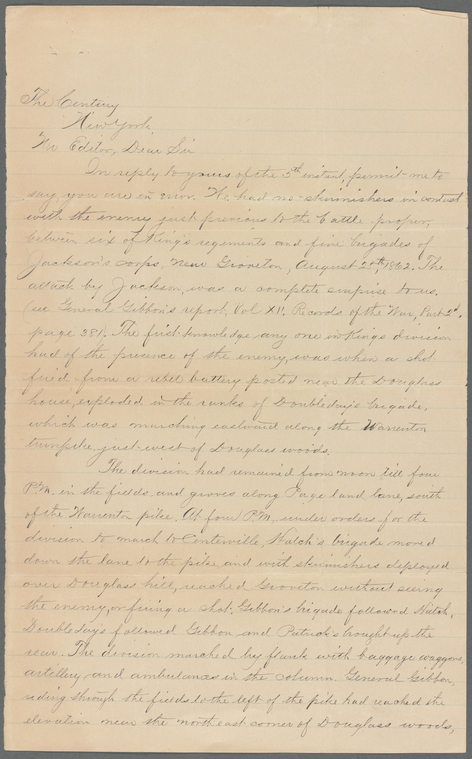 The Century
New York
The Editor, Dear Sir
In reply to yours of the 5th instant, permit me to
say, you are in error. We had no skirmishers in contact
with the enemy just previous to the battle proper,
between six of King's regiments and five brigades of
Jackson's corps, near Groveton, August 28th, 1862. The
attack by Jackson, was a complete surprise to us.
(see General Gibbon's report, Vol XII. Records of the War, Part 2d,
page 381. The first knowledge any one in King's division
had of the presence of the enemy, was when a shot
fired from a rebel battery posted near the Douglass
house, exploded in the ranks of Doubleday's brigade,
which was marching eastward along the Warrenton
turnpike, just west of Douglass woods.
The division had remained from noon till four
P.M. in the fields and groves along Page land lane, south
of the Warrenton pike. At four P.M. under orders for the
division to march to Centerville, Hatch's brigade moved
down the lane to the pike, and with skirmishers deployed
over Douglass hill, reached Groveton without seeing
the enemy, or firing a shot. Gibbon's brigade followed Hatch,
Doubleday's followed Gibbon and Patrick's brought up the
rear. The division marched by flank with baggage waggons,
artillery and ambulances in the column. General Gibbon,
riding through the fields to the left of the pike had reached the
elevation near the northeast corner of Douglass woods,